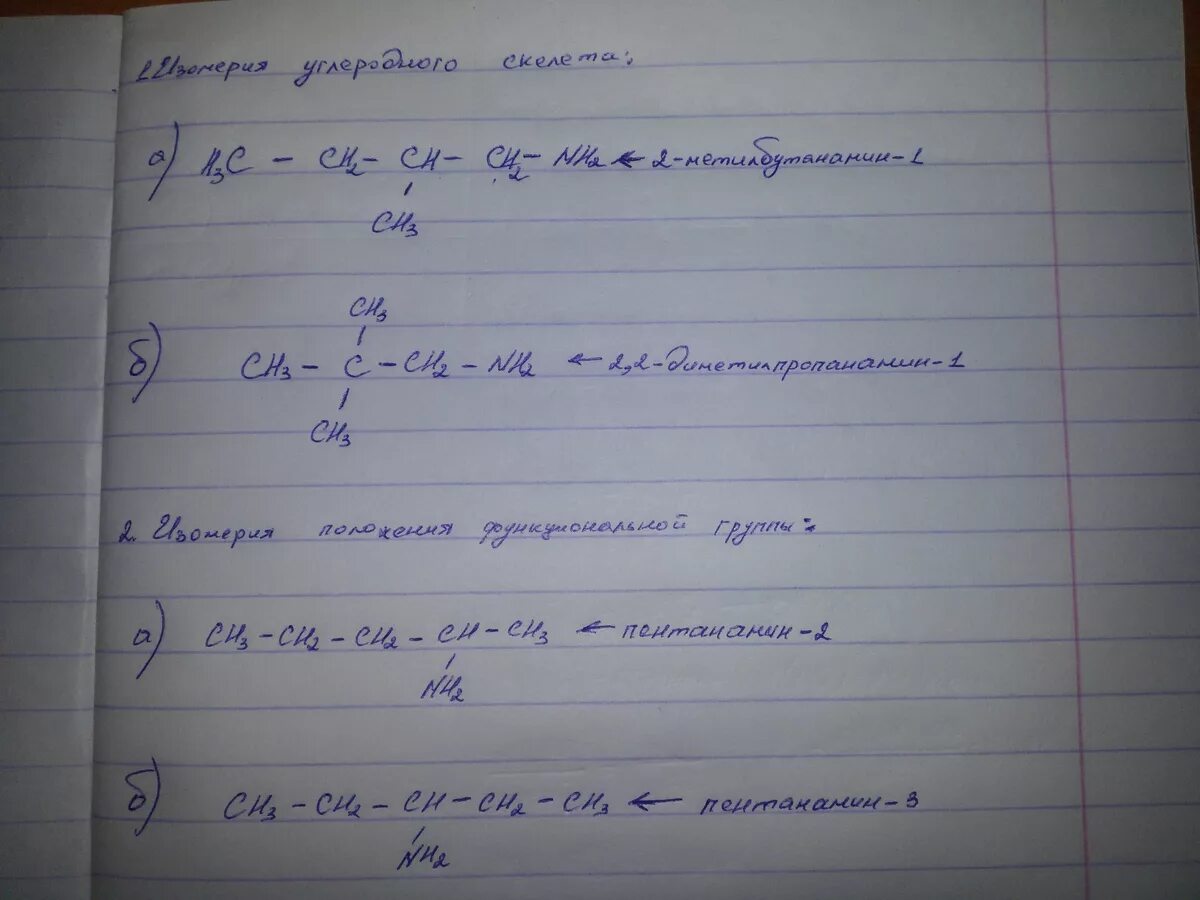 1. Изомерия углеродного скелета:
а) H₃C – CH₂ – CH – CH₂ – NH₂ ← 2-метилбутанамин-1
CH₃
CH₃
б) CH₃ – C – CH₂ – NH₂ ← 2,2-диметилпропанамин-1
CH₃
2. Изомерия положения функциональной группы:
а) CH₃ – CH₂ – CH₂ – CH – CH₃ ← пентанамин-2
NH₂
б) CH₃ – CH₂ – CH – CH₂ – CH₃ ← пентанамин-3
NH₂